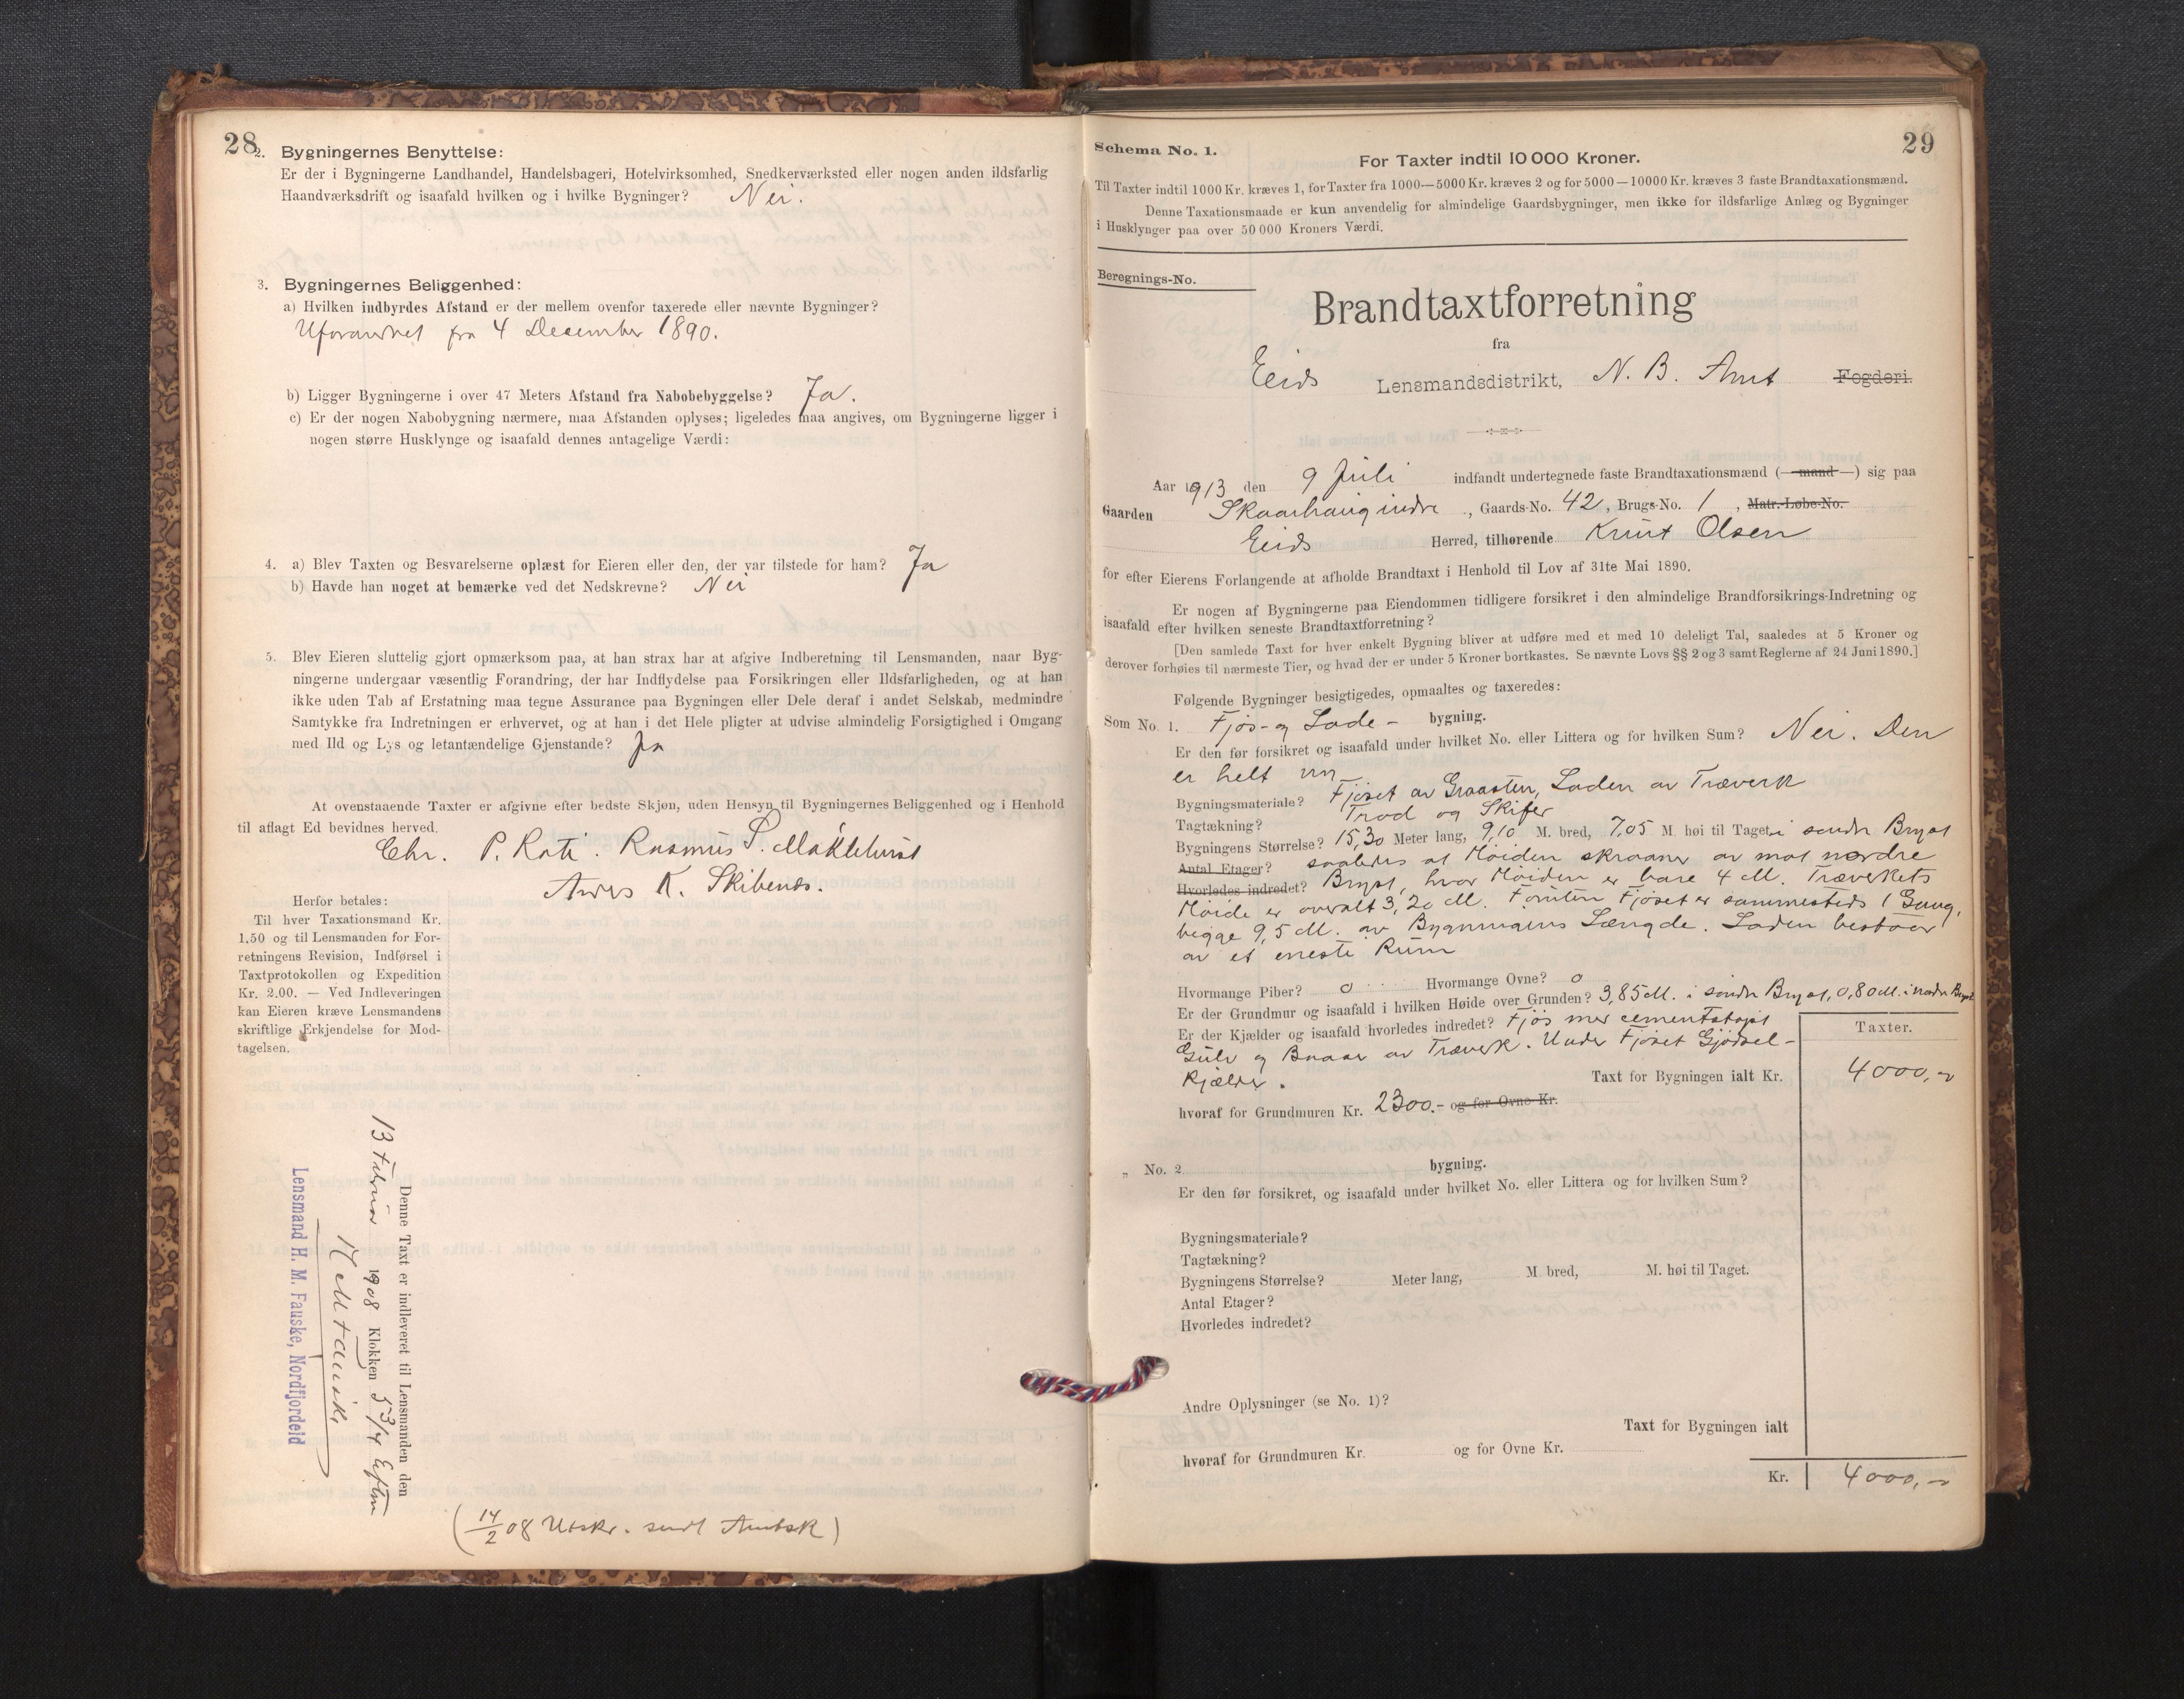 28
2. Bygningernes Benyttelse:
Er der i Bygningerne Landhandel, Handelsbageri, Hotelvirksomhed, Snedkerværksted eller nogen anden ildsfarlig
Haandværksdrift og isaafald hvilken og i hvilke Bygninger? Nei.
3. Bygningernes Beliggenhed:
a) Hvilken indbyrdes Afstand er der mellem ovenfor taxerede eller nævnte Bygninger?
Uforandret fra 4 December 1890.
b) Ligger Bygningerne i over 47 Meters Afstand fra Nabobebyggelse? Ja.
c) Er der nogen Nabobygning nærmere, maa Afstanden oplyses; ligeledes maa angives, om Bygningerne ligger i
nogen større Husklynge og isaafald dennes antagelige Værdi:
4. a) Blev Taxten og Besvarelserne oplæst for Eieren eller den, der var tilstede for ham? Ja
b) Havde han noget at bemærke ved det Nedskrevne? Nei
5. Blev Eieren sluttelig gjort opmærksom paa, at han strax har at afgive Indberetning til Lensmanden, naar Byg-
ningerne undergaar væsentlig Forandring, der har Indflydelse paa Forsikringen eller Ildsfarligheden, og at han
ikke uden Tab af Erstatning maa tegne Assurance paa Bygningen eller Dele deraf i andet Selskab, medmindre
Samtykke fra Indretningen er erhvervet, og at han i det Hele pligter at udvise almindelig Forsigtighed i Omgang
med Ild og Lys og letantændelige Gjenstande? Ja
At ovenstaaende Taxter er afgivne efter bedste Skjøn, uden Hensyn til Bygningernes Beliggenhed og i Henhold
til aflagt Ed bevidnes herved.
Chr. P. Roti. Rasmus S. Maklehust
Anders K. Skibenes.
Herfor betales:
Til hver Taxationsmand Kr.
1.50 og til Lensmanden for For-
retningens Revision, Indførsel i
Taxtprotokollen og Expedition
Kr. 2.00. — Ved Indleveringen
kan Eieren kræve Lensmandens
skriftlige Erkjendelse for Mod-
tagelsen.
Denne Taxt er indleveret til Lensmanden den
13 Februar 1908 Klokken 5 3/4 Efterm
H M Fauske
Lensmand H. M. Fauske, Nordfjordeid
(14/2 08 Utskr. sendt Amtsk)
29
Schema No. 1.
For Taxter indtil 10 000 Kroner.
Til Taxter indtil 1000 Kr. kræves 1, for Taxter fra 1000—5000 Kr. kræves 2 og for 5000—10000 Kr. kræves 3 faste Brandtaxationsmænd.
Denne Taxationsmaade er kun anvendelig for almindelige Gaardsbygninger, men ikke for ildsfarlige Anlæg og Bygninger
i Husklynger paa over 50 000 Kroners Værdi.
Beregnings-No.
Brandtaxtforretning
fra
Eids Lensmandsdistrikt, N. B. Amt Fogderi.
Aar 1913 den 9 Juli indfandt undertegnede faste Brandtaxationsmænd (—mand—) sig paa
Gaarden Skaarhaug indre, Gaards-No. 42, Brugs-No. 1, Matr.-Løbe-No.
Eids Herred, tilhørende Knut Olsen
for efter Eierens Forlangende at afholde Brandtaxt i Henhold til Lov af 31te Mai 1890.
Er nogen af Bygningerne paa Eiendommen tidligere forsikret i den almindelige Brandforsikrings-Indretning og
isaafald efter hvilken seneste Brandtaxtforretning?
[Den samlede Taxt for hver enkelt Bygning bliver at udføre med et med 10 deleligt Tal, saaledes at 5 Kroner og
derover forhøies til nærmeste Tier, og hvad der er under 5 Kroner bortkastes. Se nævnte Lovs §§ 2 og 3 samt Reglerne af 24 Juni 1890.]
Følgende Bygninger besigtigedes, opmaaltes og taxeredes:
Som No. 1. Fjøs- og Lade- bygning.
Er den før forsikret og isaafald under hvilket No. eller Littera og for hvilken Sum? Nei. Den
er helt ny
Bygningsmateriale? Fjøset av Graasten, Laden av Træverk
Tagtækning? Trod og Skifer
Bygningens Størrelse? 15,30 Meter lang, 9,10 M. bred, 7,05 M. høi til Taget. i søndre Bryst
Antal Etager? saaledes at Høiden skraaner av mot nordre
Hvorledes indredet? Bryst, hvor Høiden er bare 4 M. Træverkets
Høide er overalt 3,20 M. Foruten Fjøset er sammesteds 1 Gang,
begge 9,5 M. av Bygningens Længde. Laden bestaar
av et eneste Rum
Hvormange Piber? 0 Hvormange Ovne? 0
Er der Grundmur og isaafald i hvilken Høide over Grunden? 3,85 M. i søndre Bryst, 0,80 M. i nordre Bryst
Er der Kjælder og isaafald hvorledes indredet? Fjøs med cementstøpt
Gulv og Baaser av Træverk. Under Fjøset Gjødsel-
kjælder.
Taxter.
Taxt for Bygningen ialt Kr. 4000,-
hvoraf for Grundmuren Kr. 2300.- og for Ovne Kr.
„ No. 2 bygning.
Er den før forsikret, og isaafald under hvilket No. eller Littera og for hvilken Sum?
Bygningsmateriale?
Tagtækning?
Bygningens Størrelse? Meter lang, M. bred, M. høi til Taget.
Antal Etager?
Hvorledes indredet?
Andre Oplysninger (se No. 1)?
Taxt for Bygningen ialt
hvoraf for Grundmuren Kr. og for Ovne Kr.
Kr. 4000,-